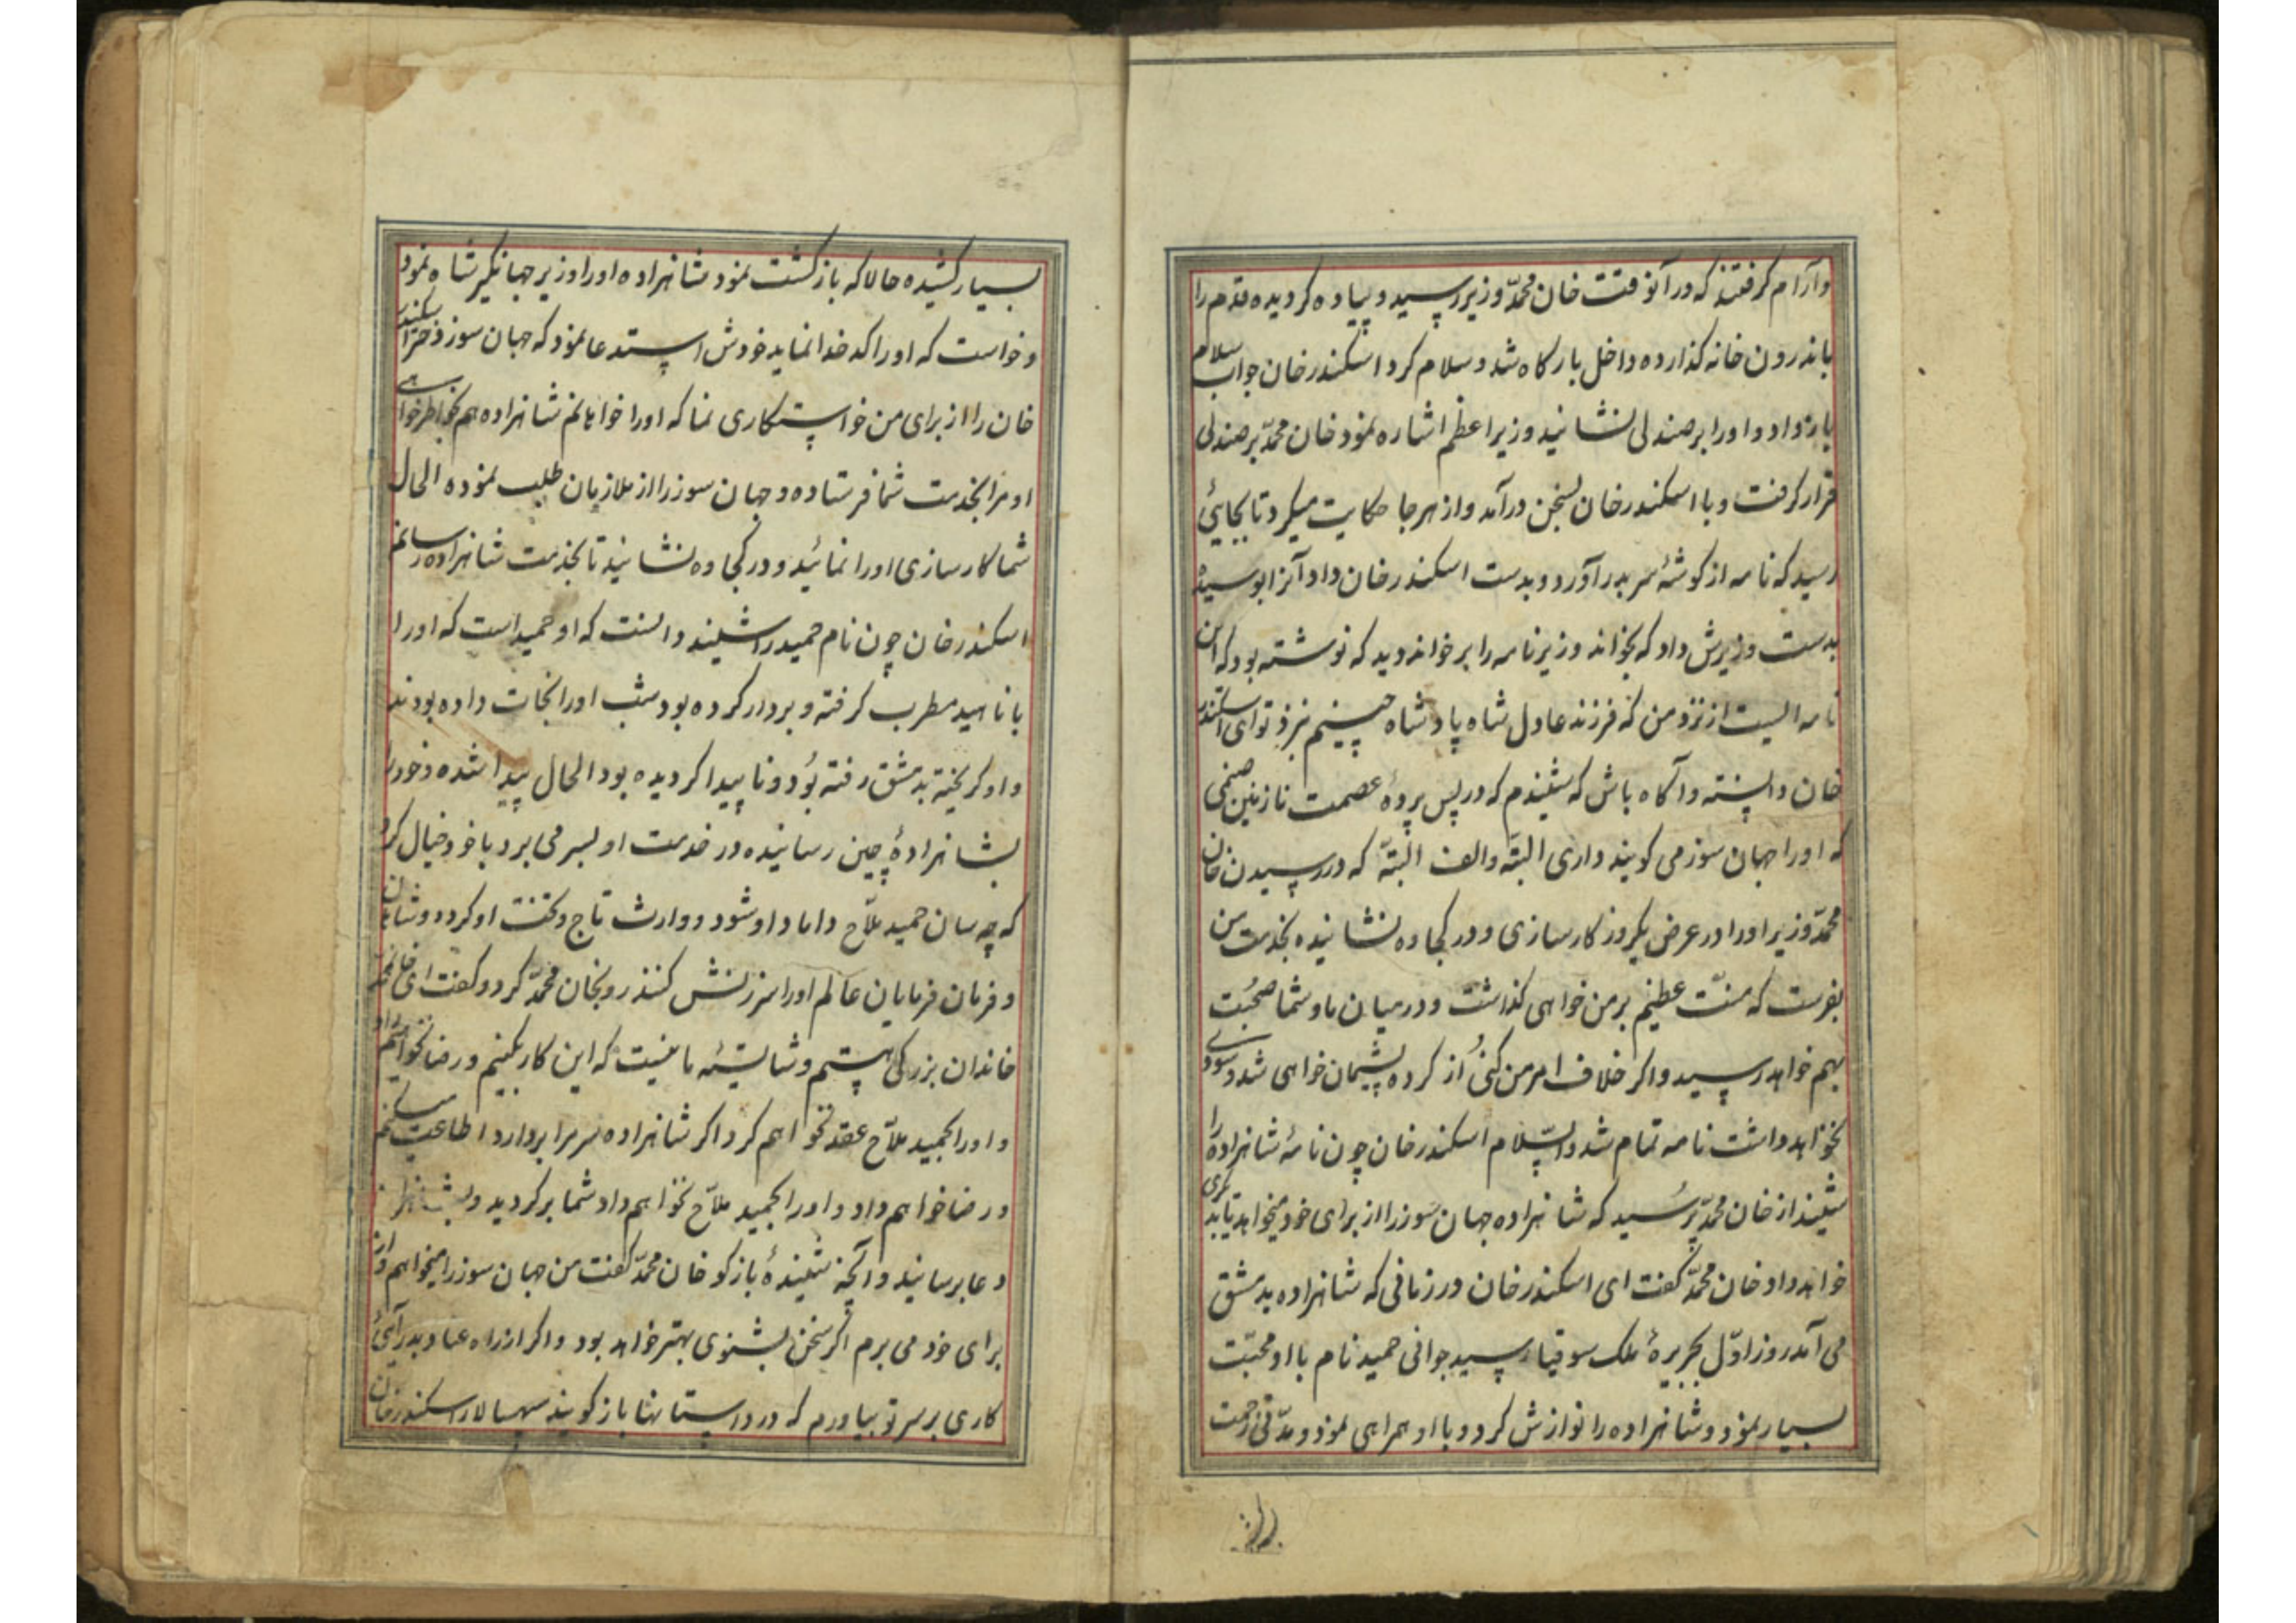 وآرام کرفتند که در آنوقت خان محمّد وزیر رسید و پیاده کردیده قدم را
باندرون خانه کذارده داخل بارکاه شد و سلام کرد اسکندر خان جواب سلام
باز داد و او را بر صندلی نشانید وزیر اعظم اشاره نمود خان محمّد بر صندلی
قرار کرفت و با اسکندر خان بسخن درآمد و از هر جا حکایت میکرد تا بجایئ
رسید که نامه از کوشهٔ سر بدر آورد و بدست اسکندر خان داد آنرا بوسیده
بدست وزیرش داد که بخواند وزیر نامه را بر خواند دید که نوشته بود که این
نامه ایست از نزد من که فرزند عادل شاه پادشاه چینم نزد تو ای اسکندر
خان دانسته و آکاه باش که شنیدم که در پس پردهٔ عصمت نازنین صنمی
که او را جهان سوز می کویند داری البتّه والف البتّه که در رسیدن خان
محمّد وزیر او را در عرض یکروز کارسازی و در کجاوه نشانیده بخدمت من
بفرست که منّت عظیم بر من خواهی کذاشت و در میان ما و شما صحبت
بهم خواهد رسید و اکر خلاف امر من کنی از کرده پشیمان خواهی شد و سودی
نخواهد داشت نامه تمام شد والسّلام اسکندر خان چون نامهٔ شاهزاده را
شنید از خان محمّد پرسید که شاهزاده جهان سوز را از برای خود میخواهد یا بدیکری
خواهد داد خان محمّد کفت ای اسکندر خان در زمانی که شاهزاده بدمشق
می آمد روز اوّل بجزیرهٔ ملک سوقیا رسید جوانی حمید نام با او محبّت
بسیار نمود و شاهزاده را نوازش کرد و با او همراهی نمود و مدّتی زحمت
بسیار کشیده حالا که بازکشت نمود شاهزاده او را وزیر جهانکیر شاه نمود
و خواست که او را کدخدا نماید خودش استدعا نمود که جهان سوز دختر اسکندر
خان را از برای من خواستکاری نما که او را خواهانم شاهزاده هم بخاطر خواهی
او مرا بخدمت شما فرستاده و جهان سوز را از ملازمان طلب نموده الحال
شما کارسازی او را نمائید و در کجاوه نشانید تا بخدمت شاهزاده رسانم
اسکندر خان چون نام حمید را شنید دانست که او حمید است که او را
با ناهید مطرب کرفته و بردار کرده بود شب او را نجات داده بودند
و او کریخته بدمشق رفته بود و ناپیدا کردیده بود الحال پیدا شده و خود را
بشاهزادهٔ چین رسانیده در خدمت او بسر می برد با خود خیال کرد
که چه سان حمید ملاّح داماد او شود و وارث تاج و تخت او کردد و شاهان
و فرمان فرمایان عالم او را سرزنش کنند رو بخان محمّد کرد و کفت ای خان محمّد
خاندان بزرکی هستم و شایستهٔ ما نیست که این کار بکنیم و رضا نخواهم داد
و او را بحمید ملاّح عقد نخواهم کرد اکر شاهزاده سر مرا بردارد اطاعت میکنم
و رضا خواهم داد و او را بحمید ملاّح نخواهم داد شما برکردید و بشاهزاده
دعا برسانید و آنچه شنیدهٔ بازکو خان محمّد کفت من جهان سوز را میخواهم و از
برای خود می برم اکر سخن بشنوی بهتر خواهد بود و اکر از راه عناد بدرآیی
کاری بر سر تو بیاورم که در داستانها باز کویند سپهسالار اسکندر خان